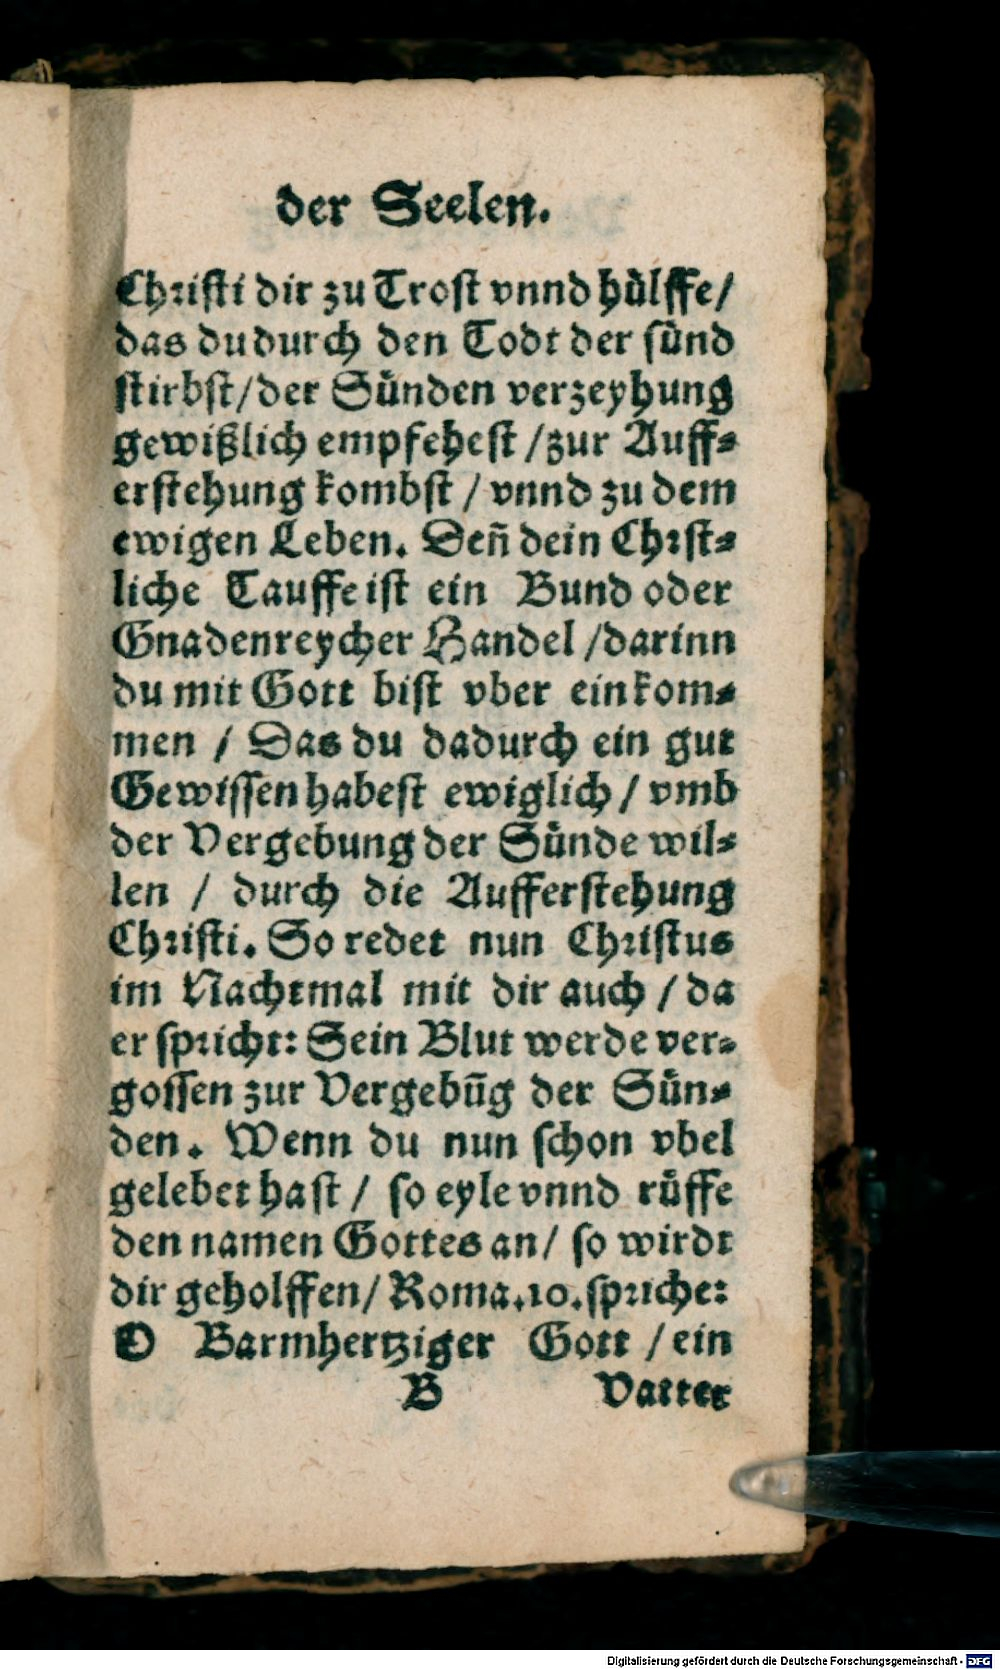 der Seelen.
Christi dir zu Trost vnnd hülffe/
das du durch den Todt der sünd
stirbst/der Sünden verzeyhung
gewißlich empfehest /zur Auff⸗
erstehung kombst / vnnd zu dem
ewigen Leben. Deñ dein Chrst⸗
liche Tauffe ist ein Bund oder
Gnadenreycher Handel /darinn
du mit Gott bist vber einkom⸗
men / Das du dadurch ein gut
Gewissen habest ewiglich / vmb
der Vergebung der Sünde wil⸗
len / durch die Aufferstehung
Christi. So redet nun Christus
im Nachtmal mit dir auch / da
er spricht: Sein Blut werde ver⸗
gossen zur Vergebūg der Sün⸗
den. Wenn du nun schon vbel
gelebet hast / so eyle vnnd rüffe
den namen Gottes an/ so wirdt
dir geholffen/ Roma.10.spricht:
O Barmhertziger Gott / ein
B Vatter
Digitalisierung gefördert durch die Deutsche Forschungsgemeinschaft - DFG